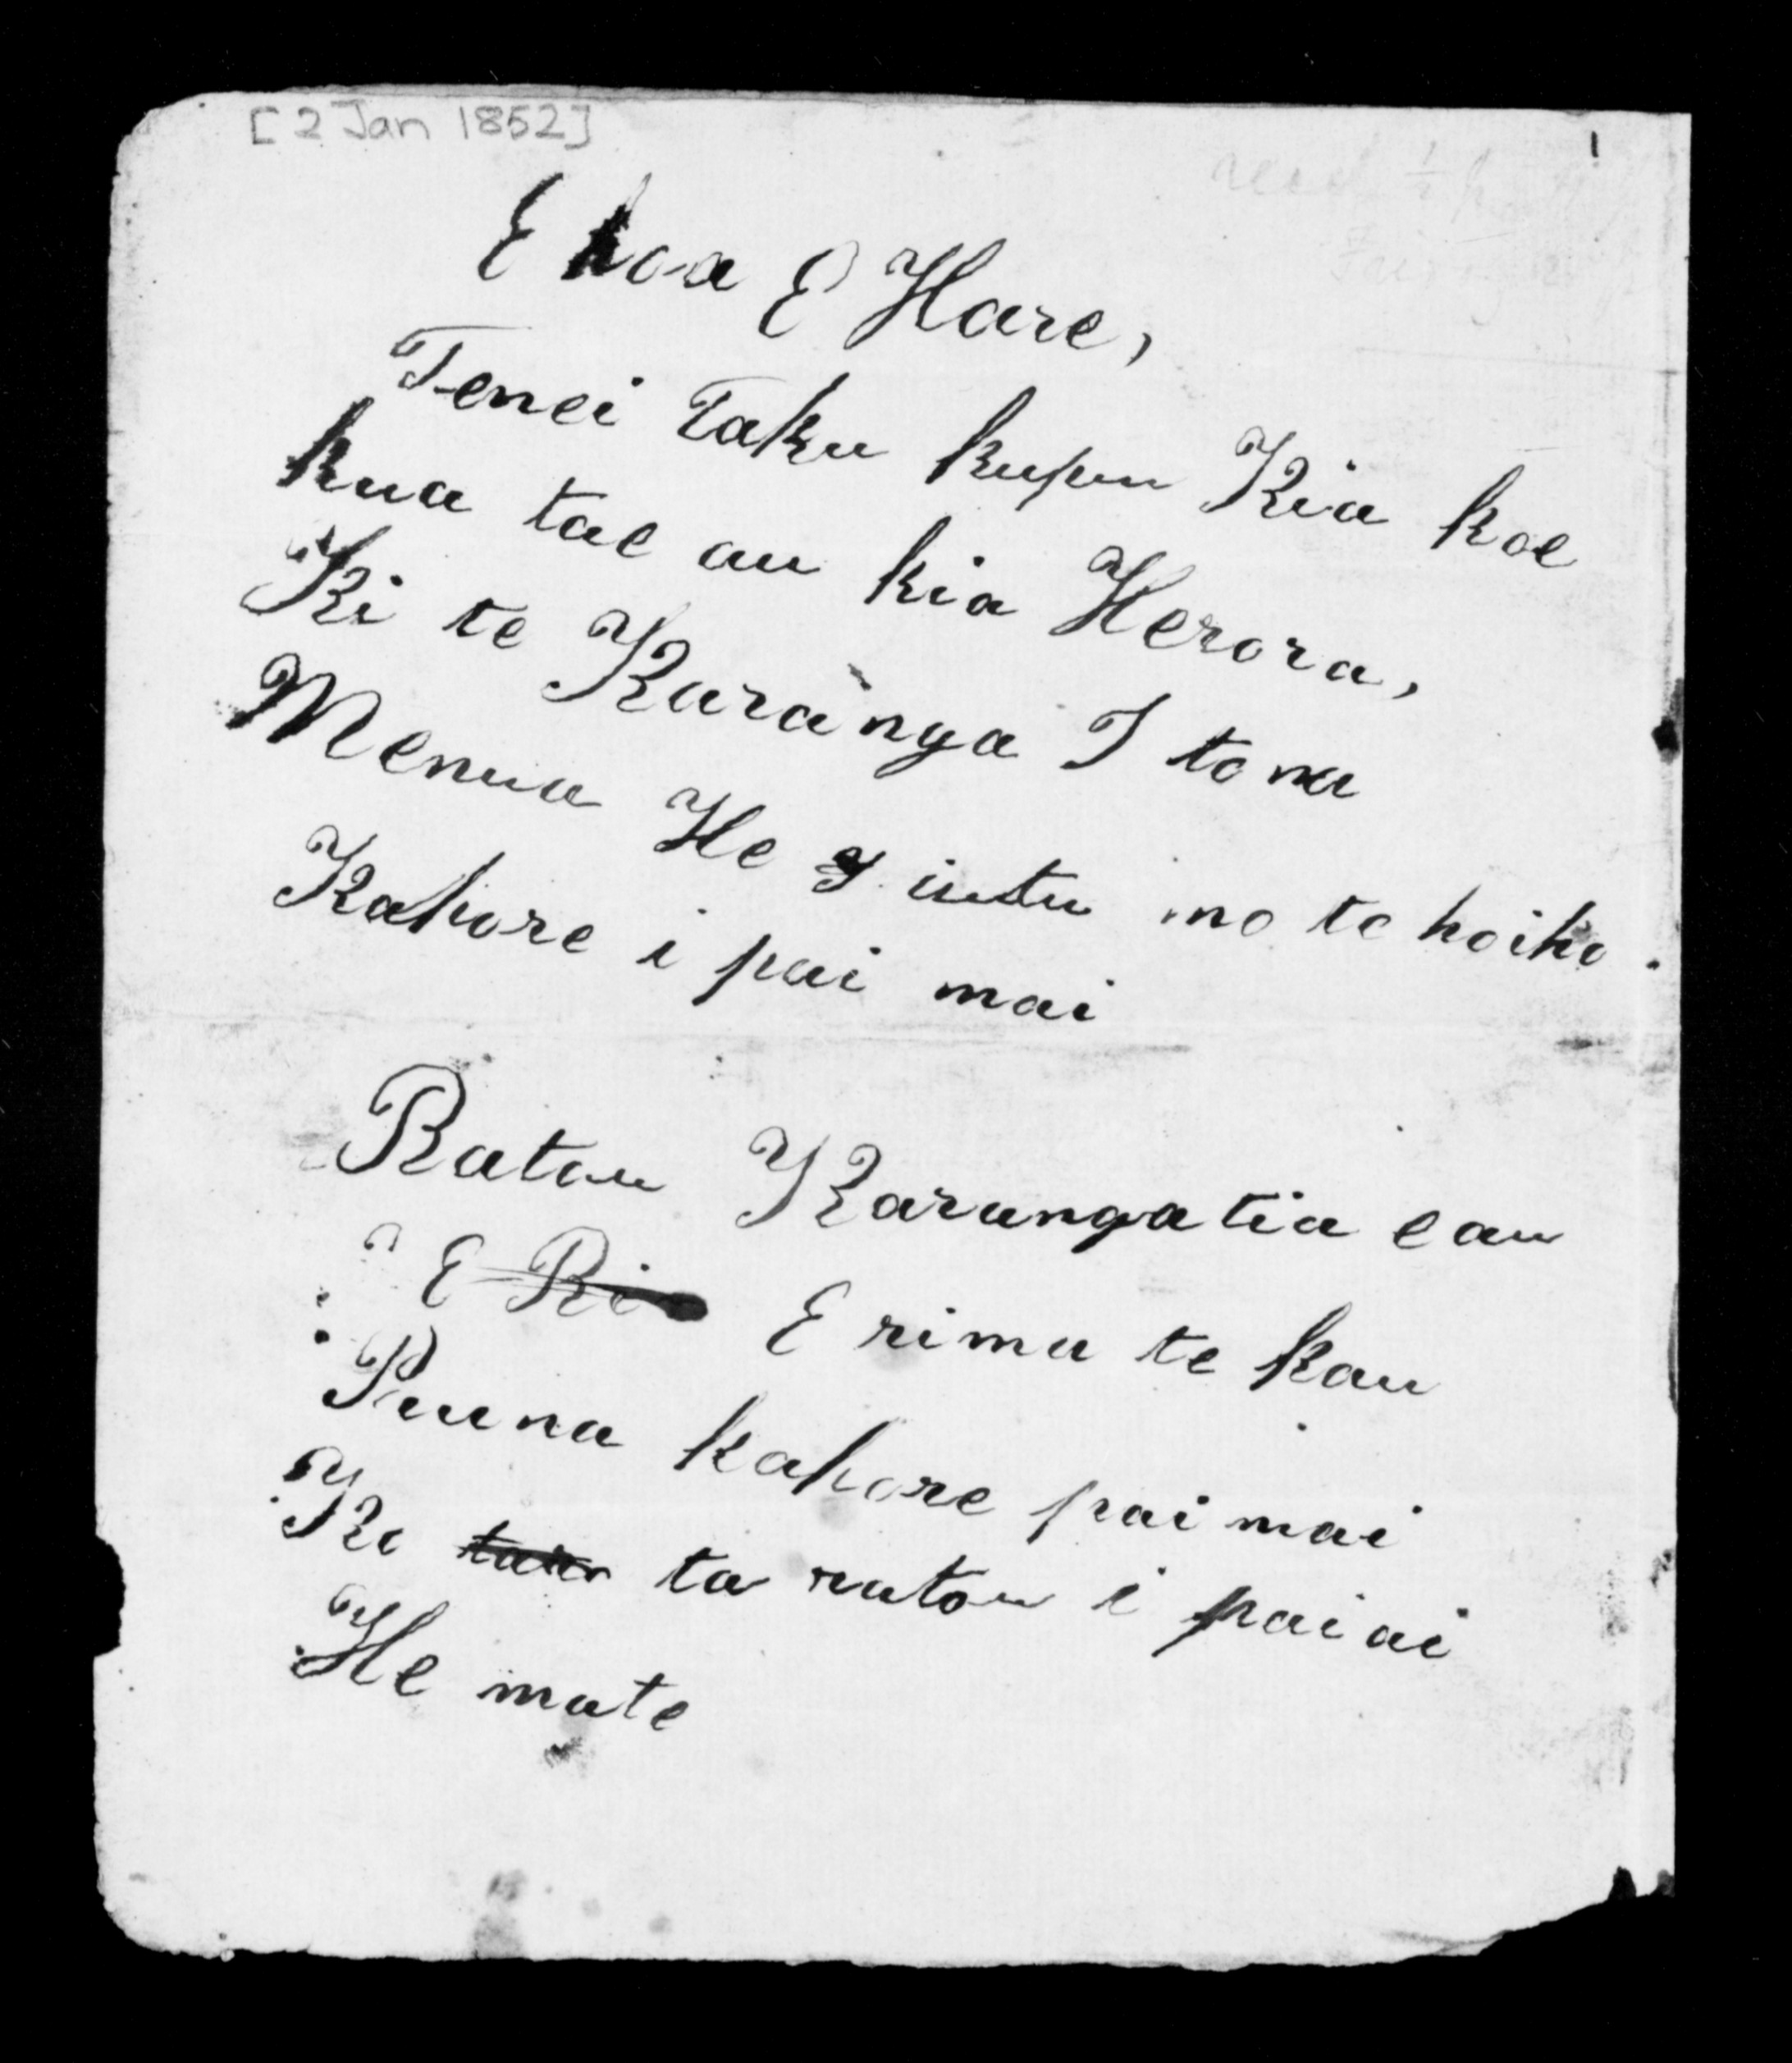 [2 Jan 1852]
1
E hoa E Hare,
Tenei Taku kupu Kia koe
kua tae au kia Herora,
Ki te Karanga I tona
Menua He utu no te hoiho.
Kahore i pai mai
Ratou Karangatia e au
E Ri E rima te kau
Puuna kahore pai mai
Ko ta ratou i pai ai
He mate